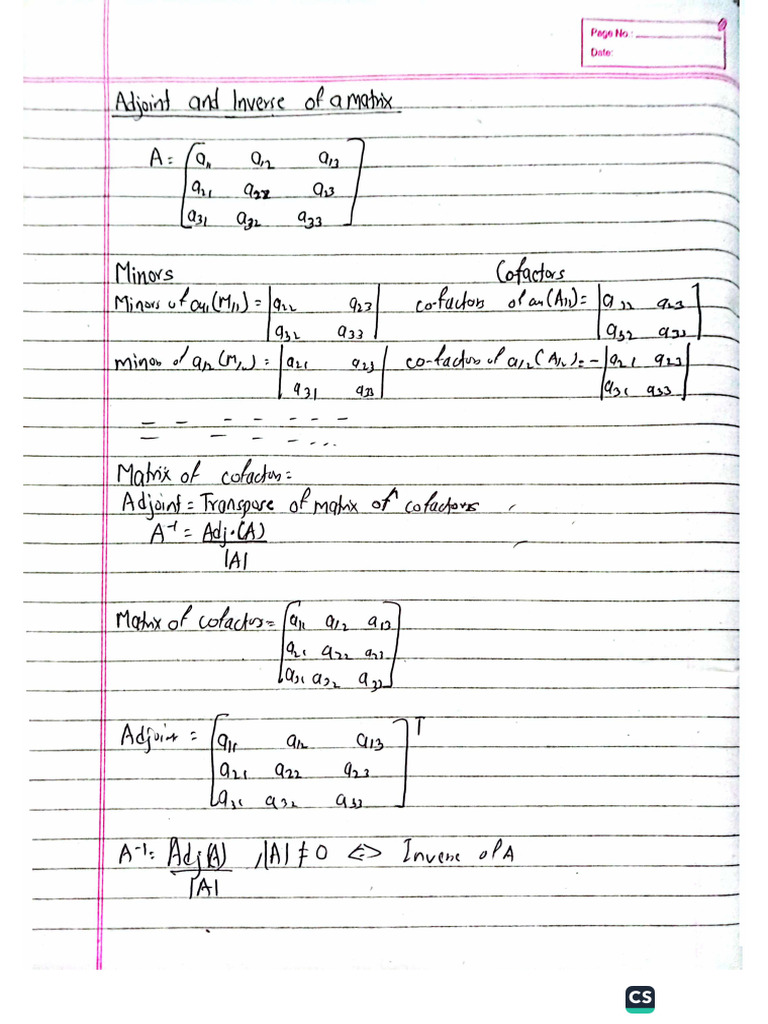 Page No :
Date:
Adjoint and Inverse of a matrix
A = [a₁₁ a₁₂ a₁₃
a₂₁ a₂₂ a₂₃
a₃₁ a₃₂ a₃₃]
Minors Cofactors
Minors of a₁₁(M₁₁) = |a₂₂ a₂₃ co-factors of a₁₁(A₁₁) = |a₂₂ a₂₃
a₃₂ a₃₃| a₃₂ a₃₃|
minors of a₁₂(M₁₂) = |a₂₁ a₂₃ co-factors of a₁₂(A₁₂) = -|a₂₁ a₂₃
a₃₁ a₃₃| a₃₁ a₃₃|
Matrix of cofactors =
Adjoint = Transpose of matrix of cofactors
A⁻¹ = Adj.(A)
|A|
Matrix of cofactors = [a₁₁ a₁₂ a₁₃
a₂₁ a₂₂ a₂₃
a₃₁ a₃₂ a₃₃]
Adjoint = [a₁₁ a₁₂ a₁₃ ]ᵀ
a₂₁ a₂₂ a₂₃
a₃₁ a₃₂ a₃₃
A⁻¹ = Adj(A) , |A| ≠ 0 <=> Inverse of A
|A|
CS